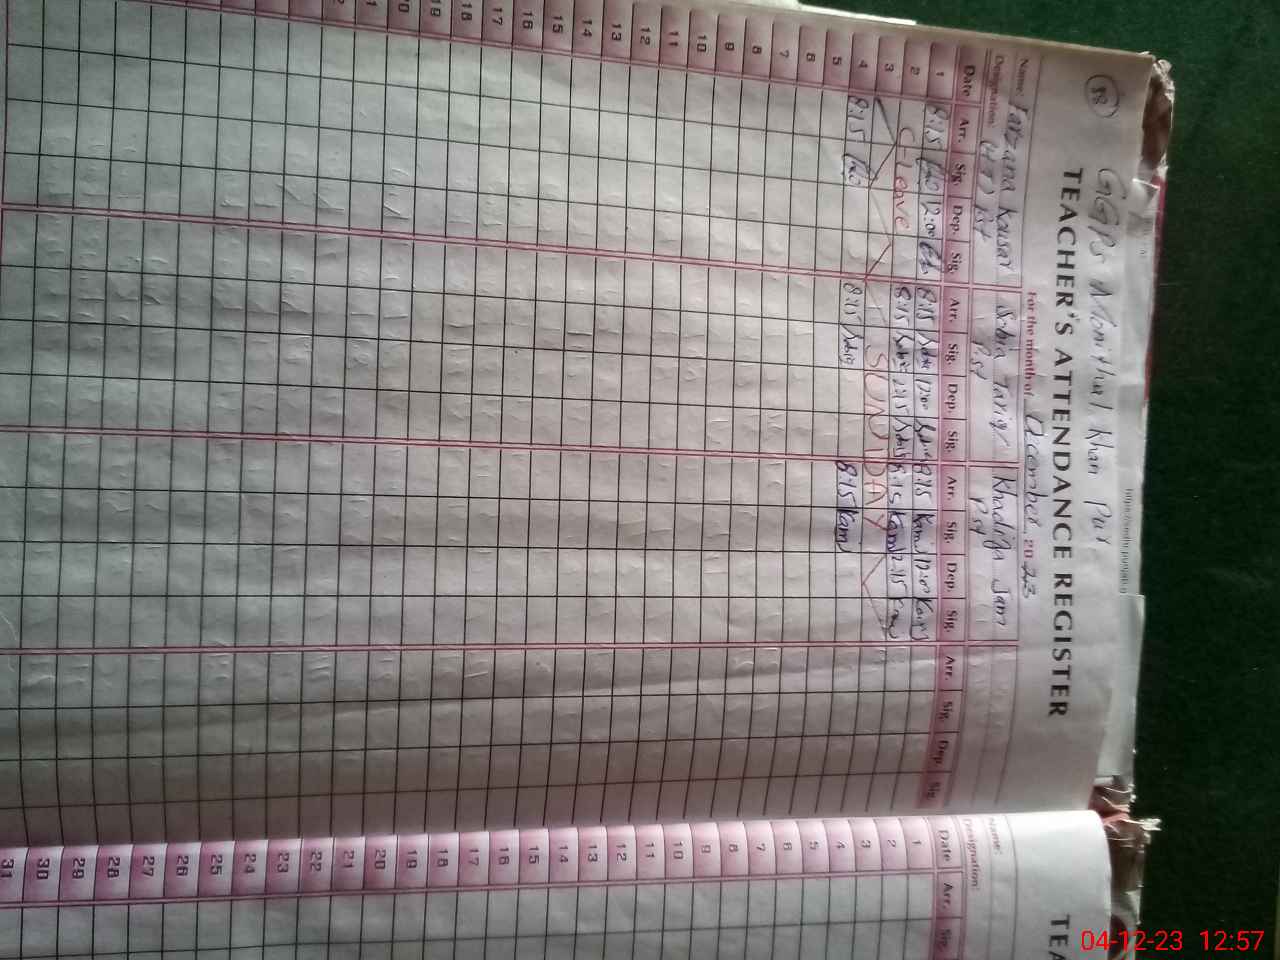 38
GGPS Monithal Khan Pur
TEACHER'S ATTENDANCE REGISTER
For the month of December 2023
Name: Farzana Kousar Sobia Tariq Khadija Jam
Designation: (H.T) PST PST
Date Arr. Sig. Dep. Sig. Arr. Sig. Dep. Sig. Arr. Sig. Dep. Sig. Arr. Sig. Dep. Sig.
1 8:15 12:00 8:15 12:00 8:15 Kami 12:00 Kami
2 C-Leave 8:15 12:15 8:15 Kami 12:15
3 SUNDAY
4 8:15 8:15 8:15 Kami
5
6
7
8
9
10
11
12
13
14
15
16
17
18
19
20
21
TEA
Name:
Designation:
Date Arr. Sig.
1
2
3
4
5
6
7
8
9
10
11
12
13
14
15
16
17
18
19
20
21
22
23
24
25
26
27
28
29
30
31
04-12-23 12:57